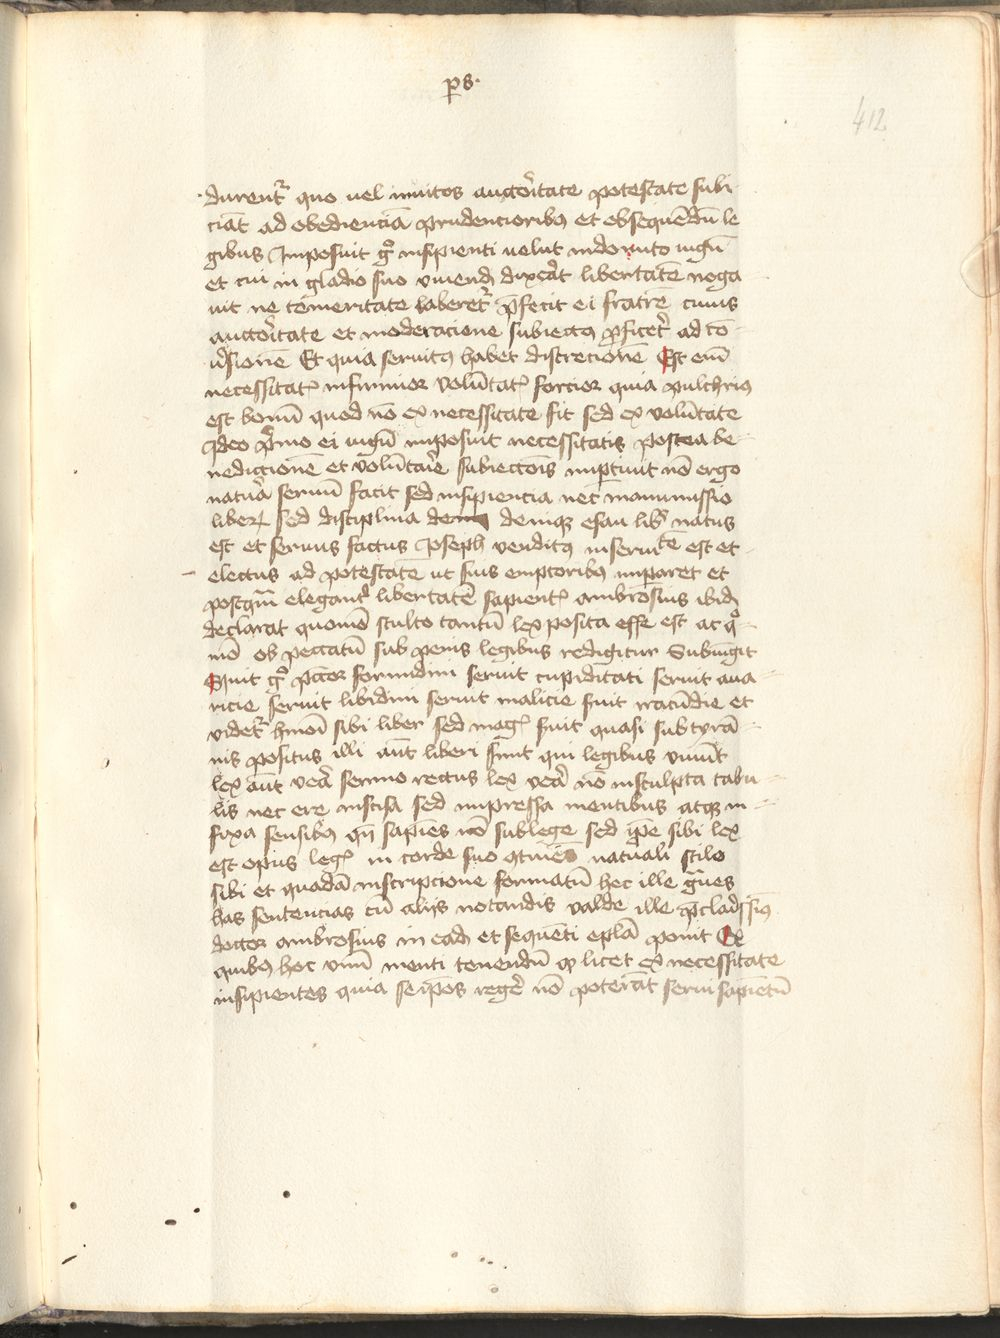 ps.
412
durent~ quo uel inuitos auctoritate potestate subi-
ciāt ad obedienciā prudencioribꝫ et obsequēdū le
gibus Imposuit gͦ insipienti uelut indomito iugū
et cui in gladio suo viuend dixat libertatē nega-
uit ne temeritate laberet~ p̄fecit ei fratrē cuius
auctoritate et moderacione subiectꝯ ꝓficeret ad cō-
ūsionē Et quia seruitꝯ habet discretionē Est enī
necessitat~ infirmior volūtat~ forcior quia pulchriꝯ
est bonū quod nō ex necessitate fit sed ex volūtate
ideo p̄mo ei iugū imposuit necessitatis postea be-
nedictionē et volūtarie subiectōis imptiuit nō ergo
natura seruū facit sed insipiencia nec manumissio
liberū sed disciplina deniqꝫ esau libͤ natus
est et seruus factus Joseph venditꝯ in seruitute est et
electus ad potestatē ut suis emptoribꝫ imparet et
postqͣm eleganter libertatē sapient~ ambrosius ibid
declarat quomō stulto tantū lex posita esse est ac qͦ-
mō ob peccatū sub penis legibus redigitur Subiūgit
Seruit gͦ pctor formidini seruit cupiditati seruit aua-
ricie seruit libidini seruit malicie suit iracūdie et
videt~ hmōi sibi liber sed mag~ suit quasi sub tyrā-
nis positus illi aūt liberi sunt qui legibus viuūt
lex aūt vera sermo rectus lex vera nō insculpta tabu-
lis nec ere inscisa sed impressa mentibus atqꝫ in-
fixa sensibꝫ qn̄ sapiēs nō sub lege sed ip̄e sibi lex
est opus leg~ in corde suo ꝯtinēs naturali stilo
sibi et quadā inscripcione formatū hec ille gͣues
has sentencias cū alijs notandis valde ille p̄clarissimꝯ
doctor ambrosius in ead et sequēti epl̄a ponit Ex
quibꝫ hoc vnū menti tenendū ꝙ licet ex necessitate
insipientes quia seip̄os regere nō poterāt serui sapientū